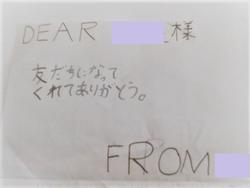 DEAR 様
友だちになって
くれてありがとう。
FROM